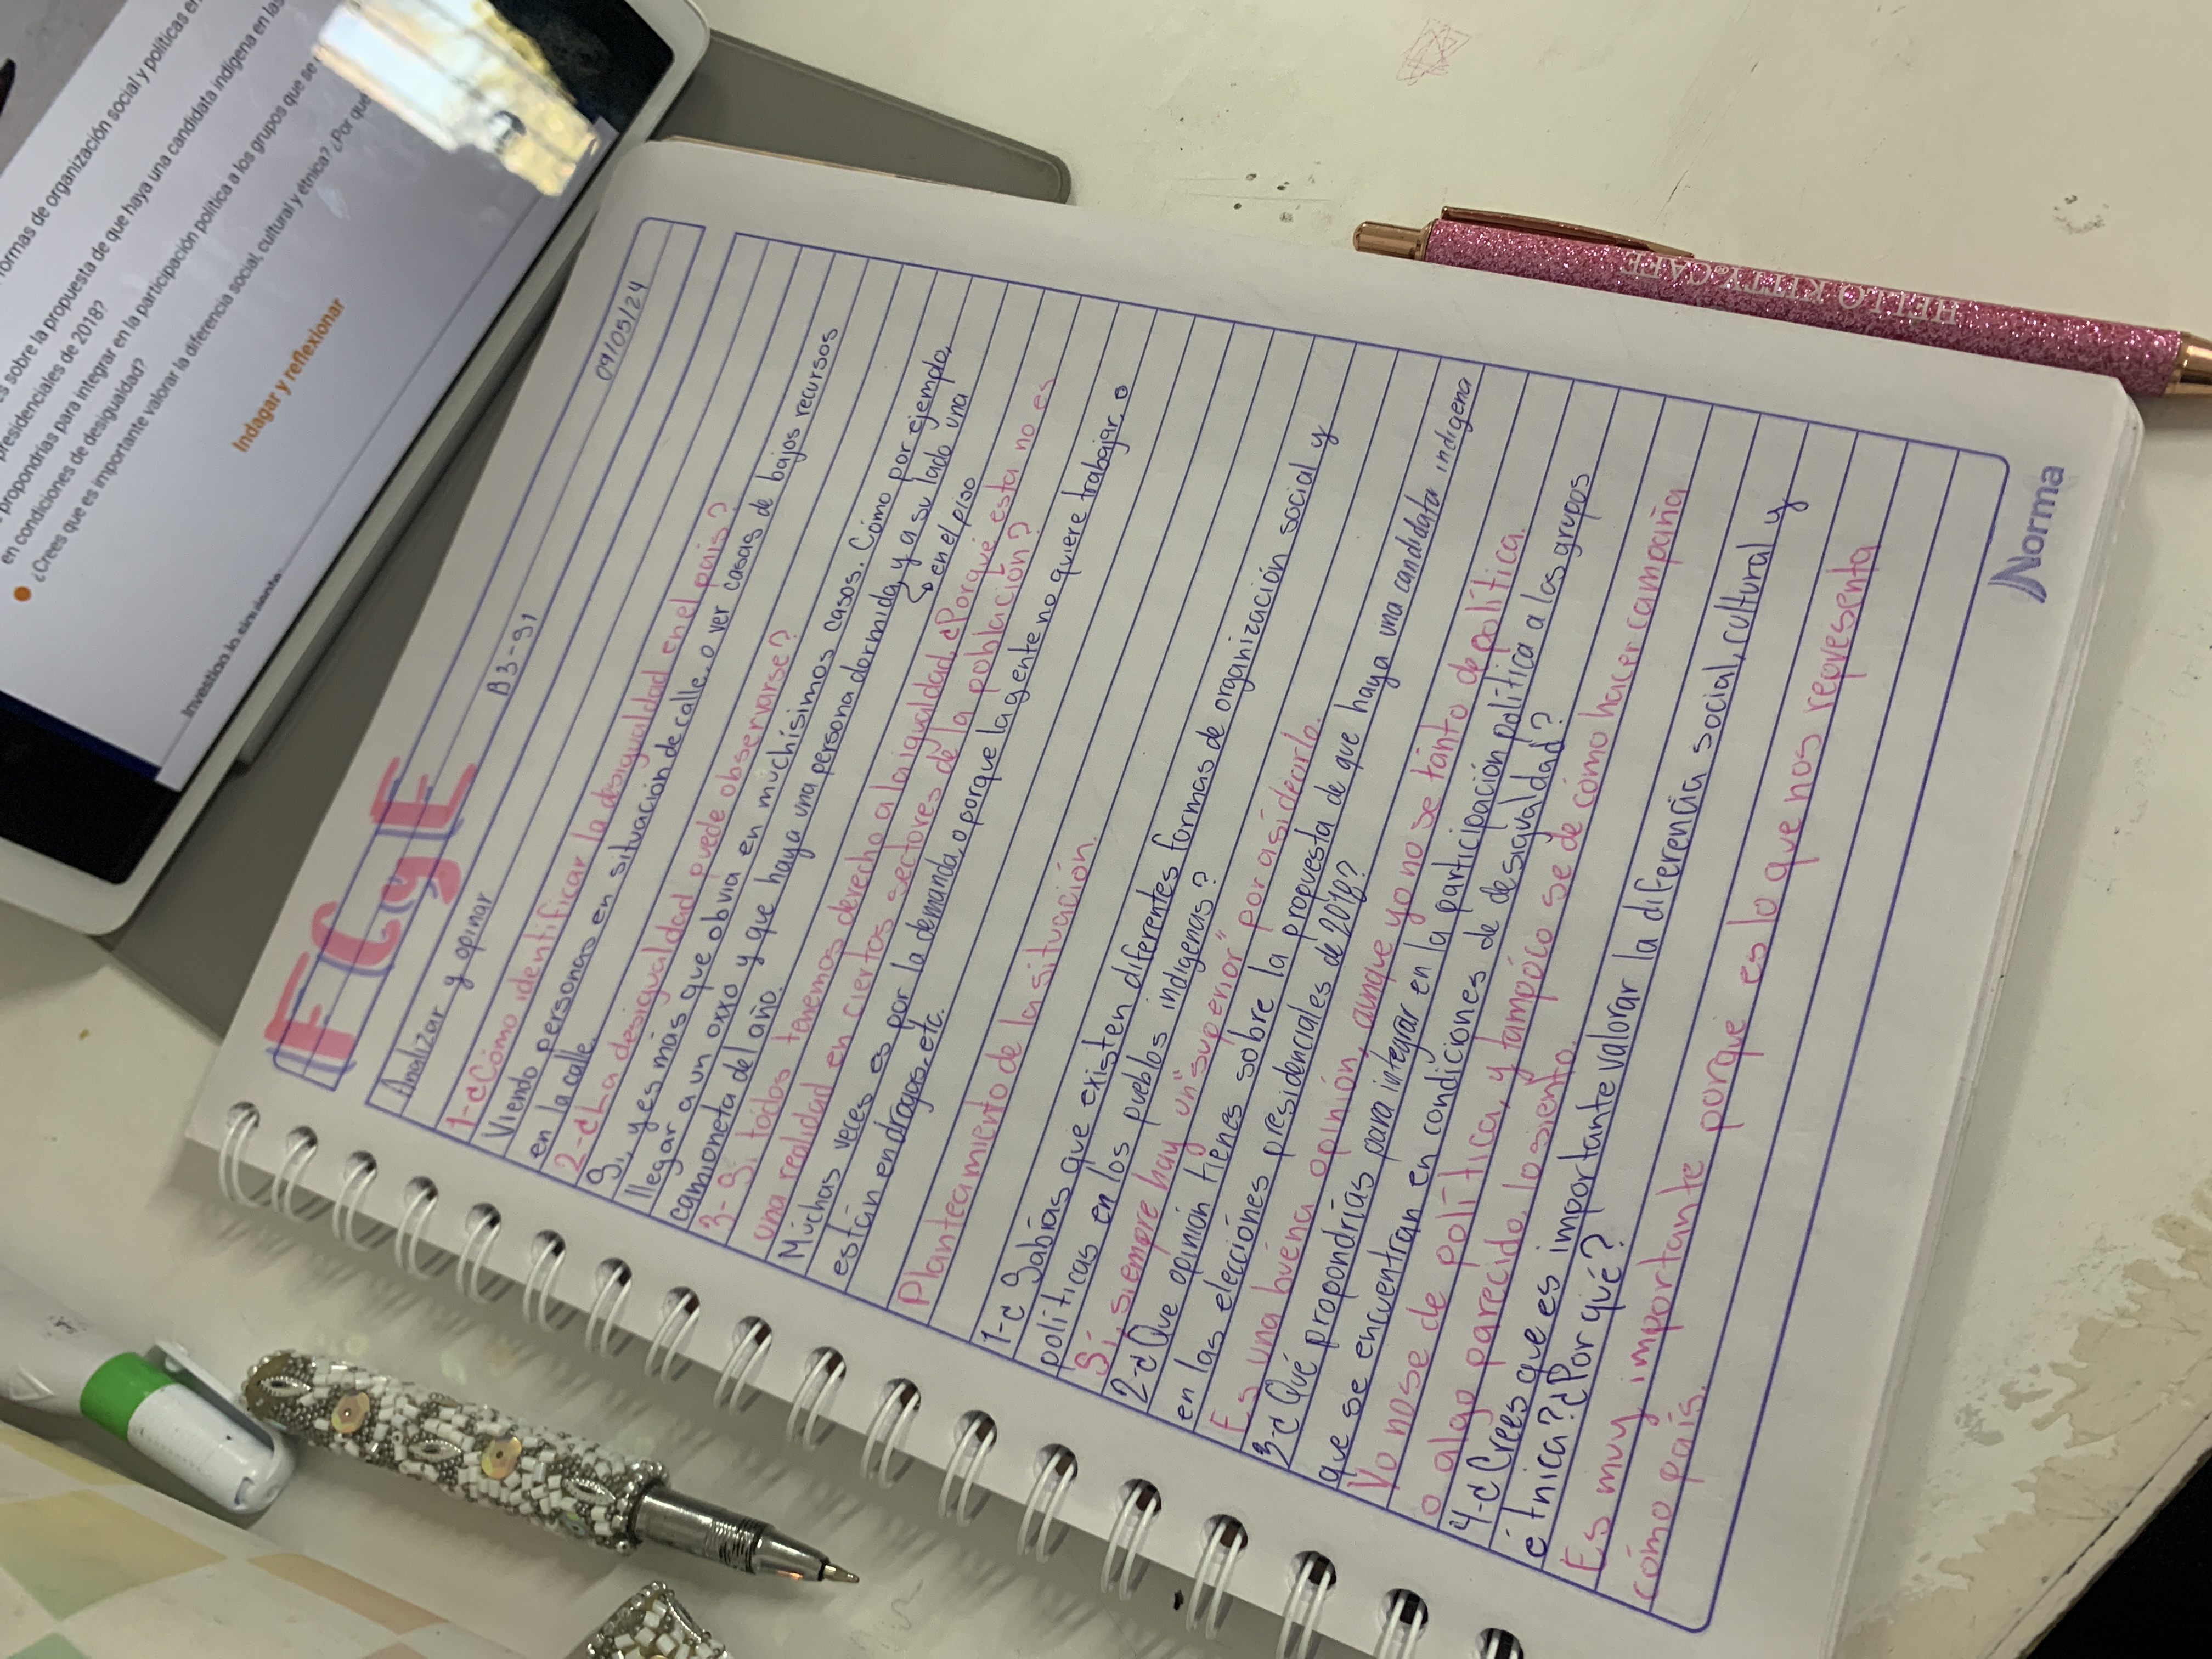 formas de organización social y políticas en
es sobre la propuesta de que haya una candidata indígena en las
presidenciales de 2018?
propondrías para integrar en la participación política a los grupos que se
en condiciones de desigualdad?
¿Crees que es importante valorar la diferencia social, cultural y étnica? ¿Por qué
Indagar y reflexionar
Investiga lo siguiente:
FCyE
09/05/24
B3-S1
Analizar y opinar
1-¿Cómo identificar la desigualdad en el país?
Viendo personas en situación de calle, o ver casas de bajos recursos
en la calle.
2-¿La desigualdad puede observarse?
Si, y es más que obvia en muchísimos casos. Cómo por ejemplo,
llegar a un oxxo y que haya una persona dormida, y a su lado una
↳ en el piso
camioneta del año.
3-Si todos tenemos derecho a la igualdad, ¿Porqué esta no es
una realidad en ciertos sectores de la población?
Múchas veces es por la demanda, o porque la gente no quiere trabajar, o
están en drogas, etc.
Planteamiento de la situación.
1-¿Sabías que existen diferentes formas de organización social y
políticas en los pueblos indígenas?
Sí, siempre hay un "superior" por así decirlo.
2-¿Que opinión tienes sobre la propuesta de que haya una candidata indígena
en las elecciónes presidenciales de 2018?
Es una buéna opinión, aunque yo no se tánto de política.
3-¿Qué propondrías para integrar en la participación política a los grupos
que se encuentran en condiciónes de desigualdad?
Yo no se de política, y tampóco se de cómo hacer campaña
o algo parecido, lo siento.
4-¿Crees que es importante valorar la diferencia social, cultural y
étnica? ¿Por qué?
Es muy importante porque es lo que nos representa
cómo país.
Norma
HELLO KITTY CAFE